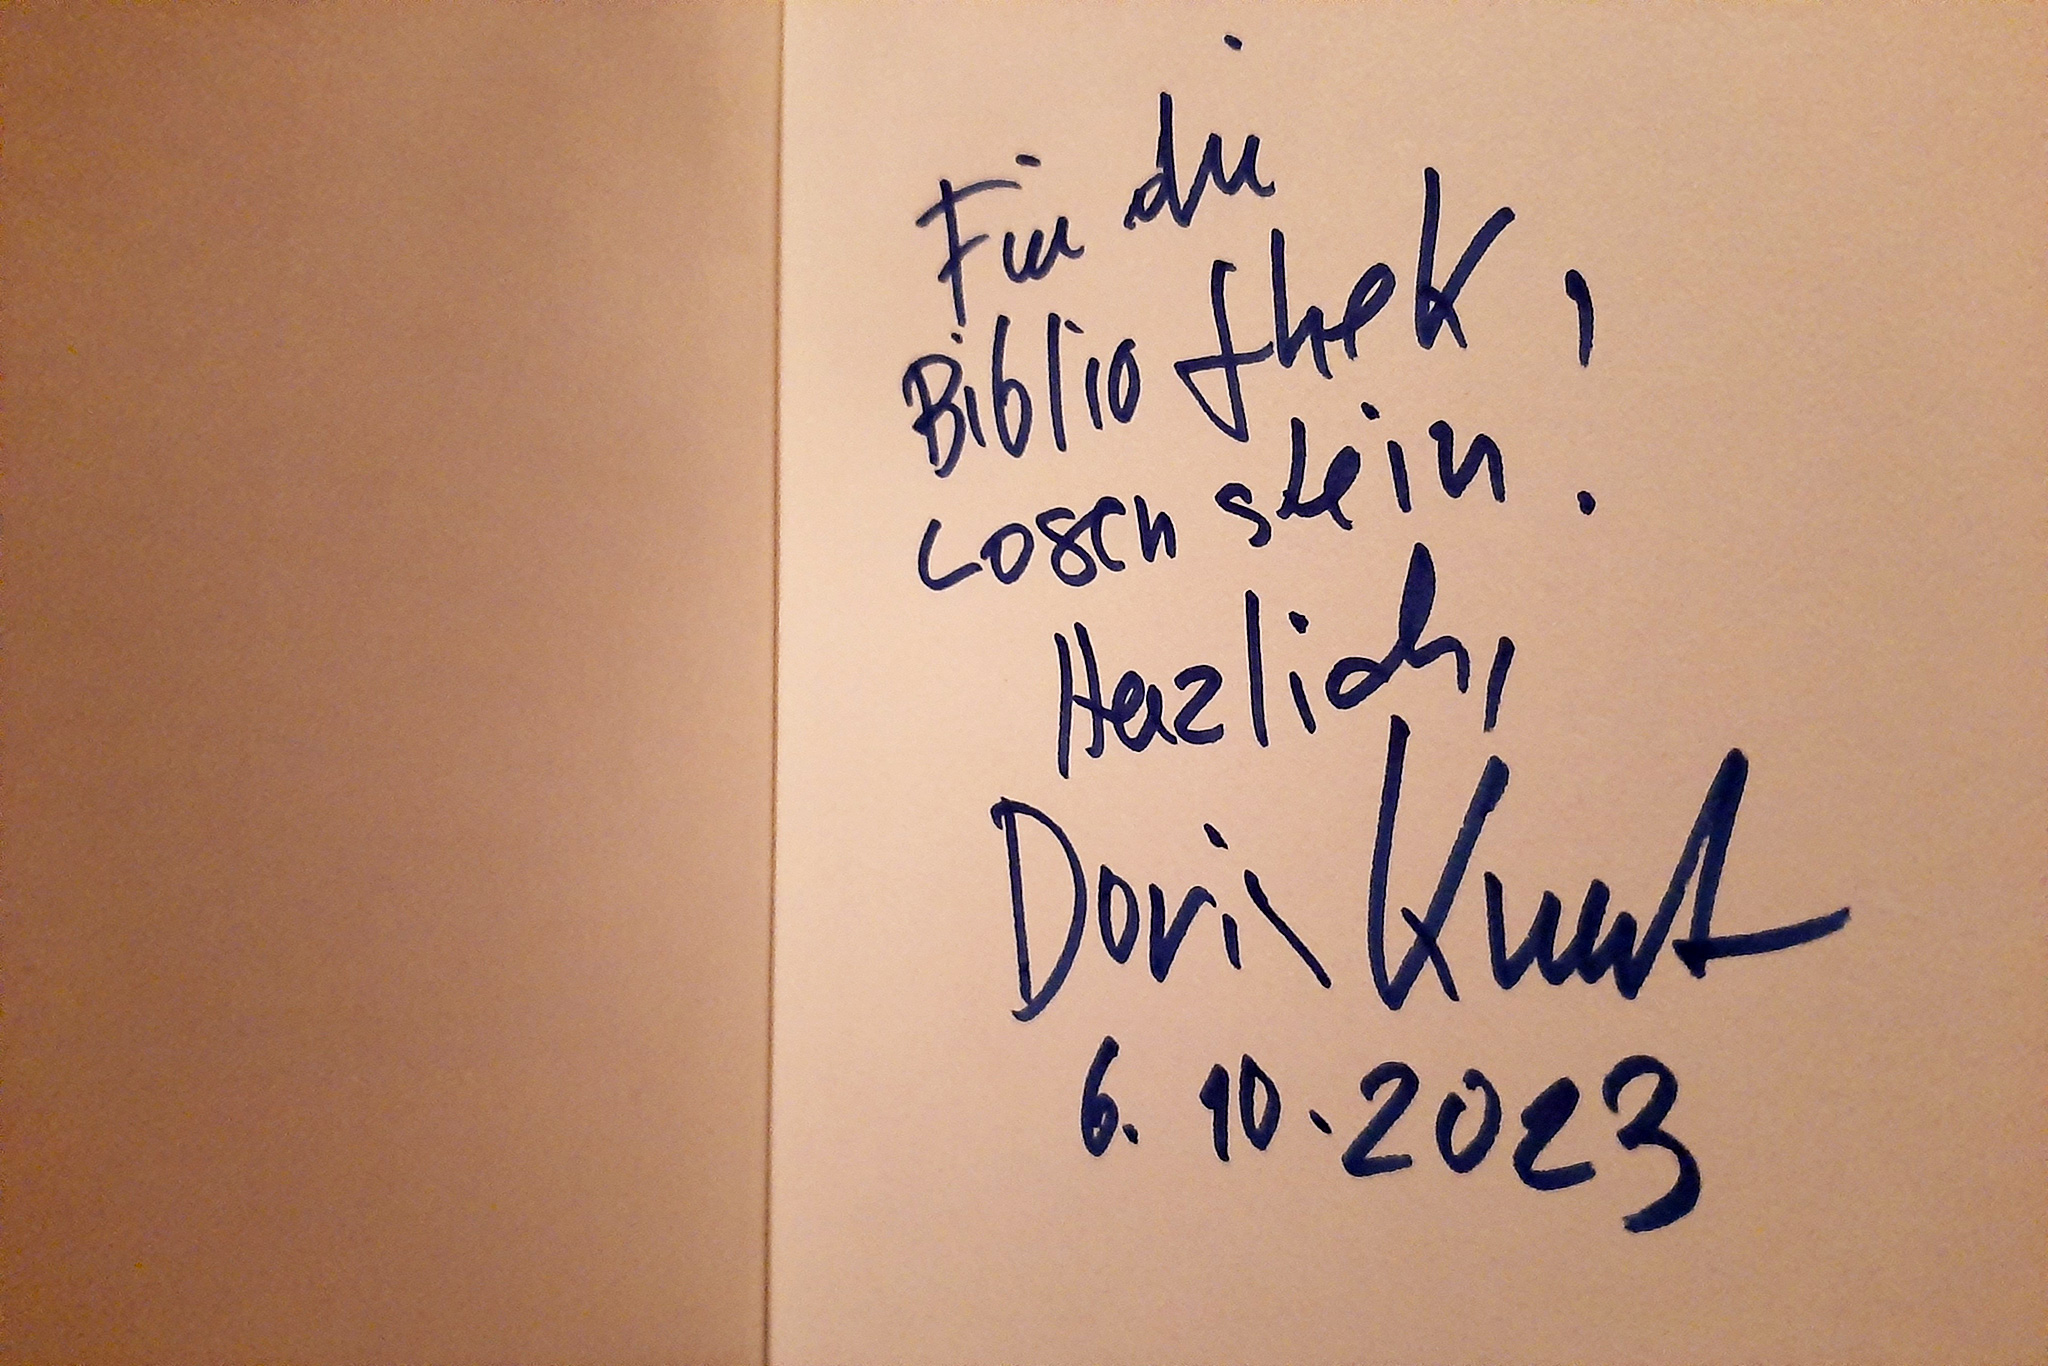 Für die
Bibliothek,
Losenstein!
Herzlich,
Doris Knecht
6.10.2023